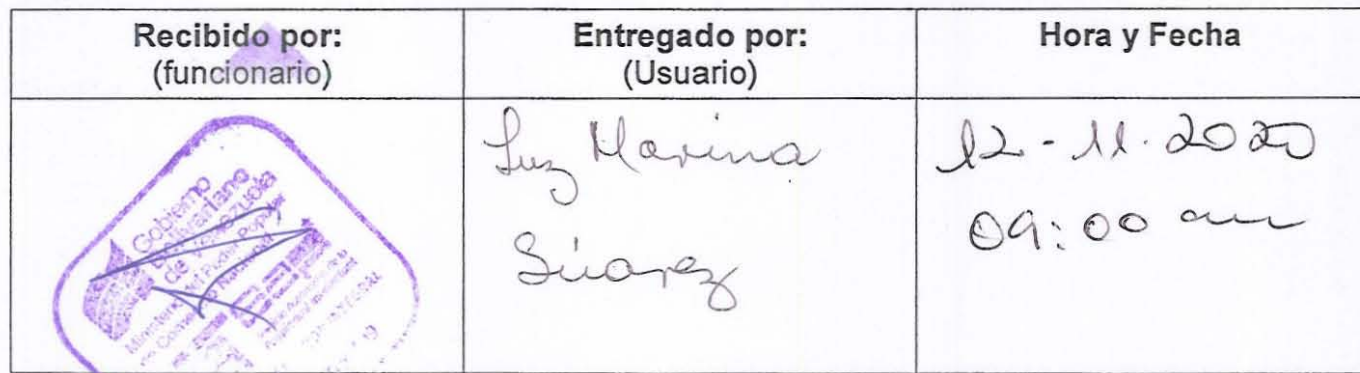 Recibido por:
(funcionario)
Entregado por:
(Usuario)
Hora y Fecha
Gobierno
Bolivariano
de Venezuela
Ministerio del Poder Popular
Luz Marina
Súarez
12-11.2020
09:00 am